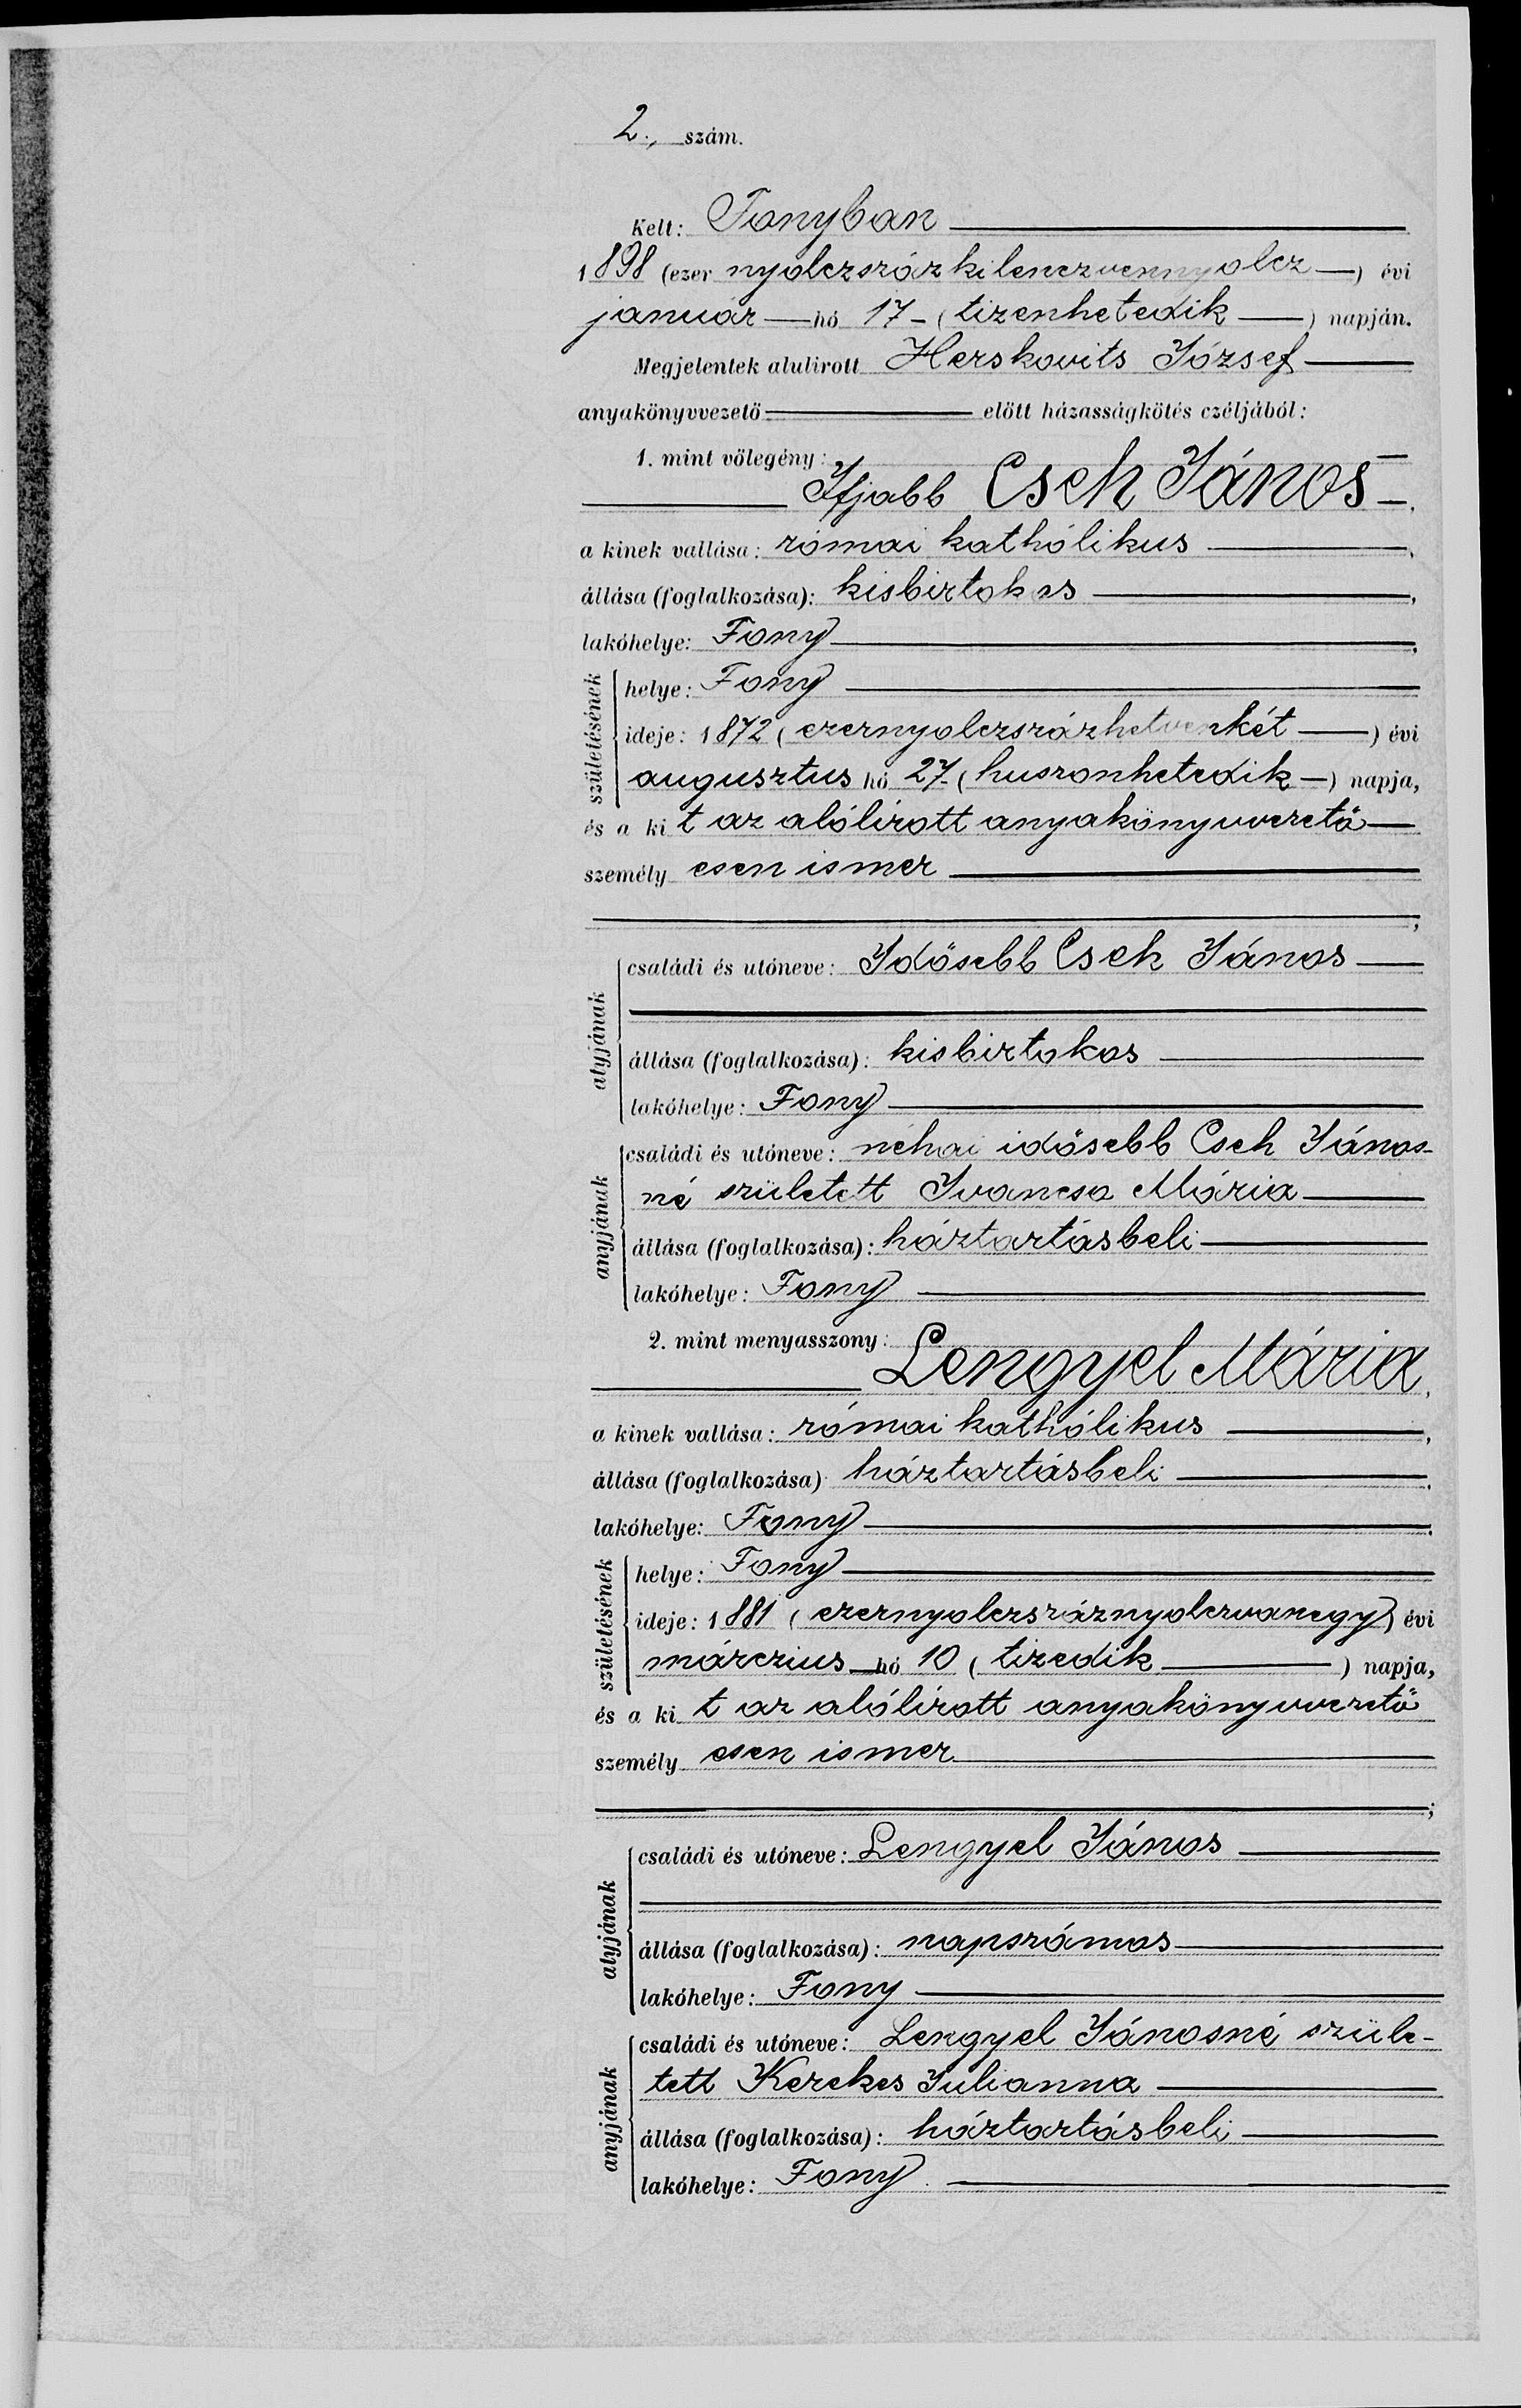 2., szám.
Kelt: Fonyban
1898 (ezer nyolczszázkilenczvennyolcz) évi
január hó 17 - (tizenhetedik) napján.
Megjelentek alulirott Herskovits József
anyakönyvvezető előtt házasságkötés czéljából:
1. mint vőlegény:
Ifjabb Cseh János
a kinek vallása: római kathólikus,
állása (foglalkozása): kisbirtokos,
lakóhelye: Fony,
születésének
helye: Fony
ideje: 1872 (ezernyolczszázhetvenkét) évi
augusztus hó 27. (huszonhetedik) napja,
és a ki t az alólirott anyakönyvvezető
személy esen ismer
;
atyjának
családi és utóneve: Idősebb Cseh János
állása (foglalkozása): kisbirtokos
lakóhelye: Fony
anyjának
családi és utóneve: néhai idősebb Cseh János-
né született Ivancsa Mária
állása (foglalkozása): háztartásbeli
lakóhelye: Fony
2. mint menyasszony:
Lengyel Mária,
a kinek vallása: római kathólikus,
állása (foglalkozása) háztartásbeli,
lakóhelye: Fony,
születésének
helye: Fony
ideje: 1881 (ezernyolczszáznyolczvanegy) évi
márczius hó 10 (tizedik) napja,
és a ki t az alólirott anyakönyvvezető
személy esen ismer
;
atyjának
családi és utóneve: Lengyel János
állása (foglalkozása): napszámos
lakóhelye: Fony
anyjának
családi és utóneve: Lengyel Jánosné szüle-
tett Kerekes Julianna
állása (foglalkozása): háztartásbeli
lakóhelye: Fony